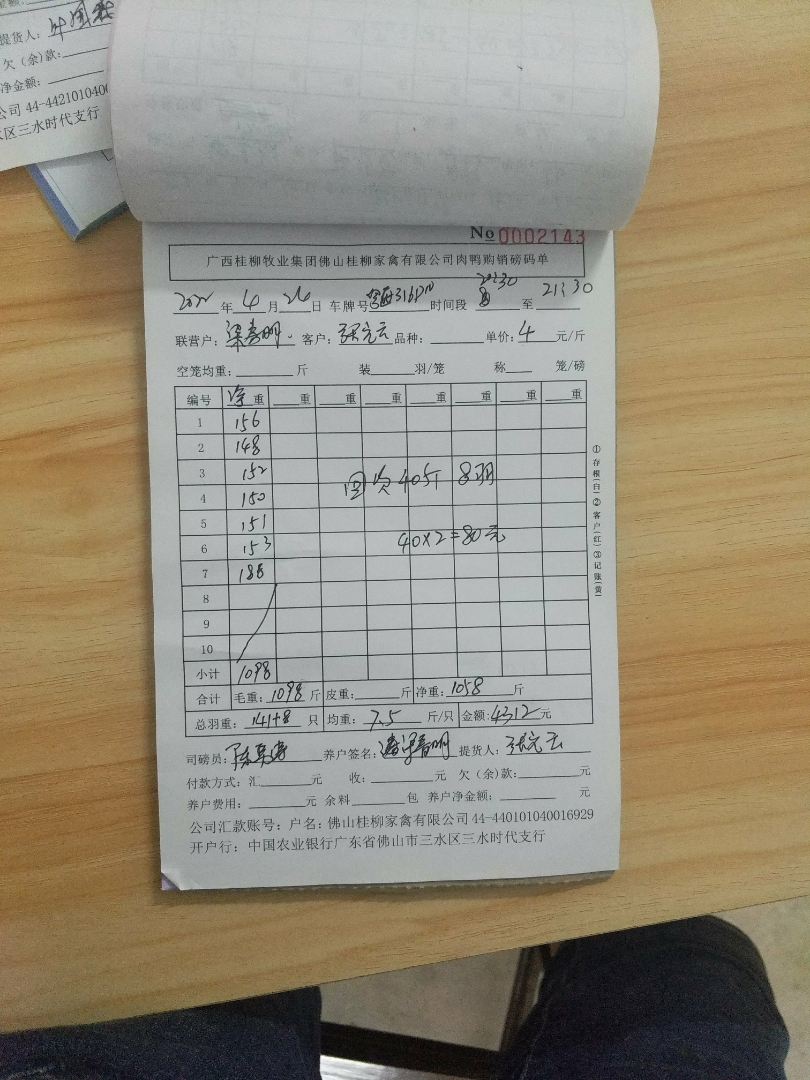 提货人：
欠（余）款：
净金额：
公司 44-44210104
区三水时代支行
No 0002143
广西桂柳牧业集团佛山桂柳家禽有限公司肉鸭购销磅码单
年 4 月 日 车牌号 时间段 20:30 至 21:30
联营户： 客户：张完云 品种： 单价：4 元/斤
空笼均重： 斤 装 羽/笼 称 笼/磅
编号 净重 重 重 重 重 重 重 重
1 156
2 148
3 152
4 150
5 151
6 153
7 188
8
9
10
次 40斤 8羽
40×2=80元
小计 1098
合计 毛重：1098 斤 皮重： 斤 净重：1058 斤
总羽重：141+8 只 均重：7.5 斤/只 金额：4312 元
司磅员： 养户签名： 提货人：张完云
付款方式：汇 元 收： 元 欠（余）款： 元
养户费用： 元 余料 包 养户净金额： 元
公司汇款账号：户名：佛山桂柳家禽有限公司 44-440101040016929
开户行：中国农业银行广东省佛山市三水区三水时代支行
①存根（白）②客户（红）③记账（黄）